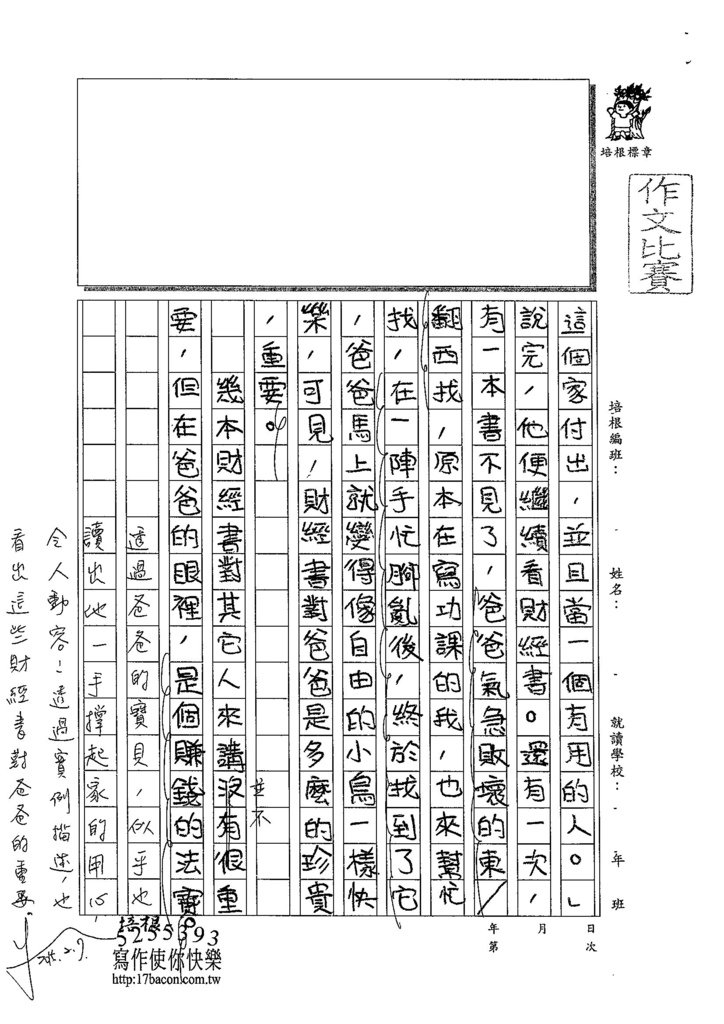 培根標章
作文比賽
培根編班：
姓名：
就讀學校：
年
班
年
月
日
第
次
這個家付出，並且當一個有用的人。」
說完，他便繼續看財經書。還有一次，
有一本書不見了，爸爸氣急敗壞的東
翻西找，原本在寫功課的我，也來幫忙
找，在一陣手忙腳亂後，終於找到了它
，爸爸馬上就變得像自由的小鳥一樣快
樂，可見，財經書對爸爸是多麼的珍貴
，重要。
並不
幾本財經書對其它人來講沒有很重
要，但在爸爸的眼裡，是個賺錢的法寶。
透過爸爸的寶貝，似乎也
讀出他一手撐起家的用心，
令人動容！透過實例描述，也
看出這些財經書對爸爸的重要。
2.9.
培根
5255393
寫作使你快樂
http://17bacon.com.tw